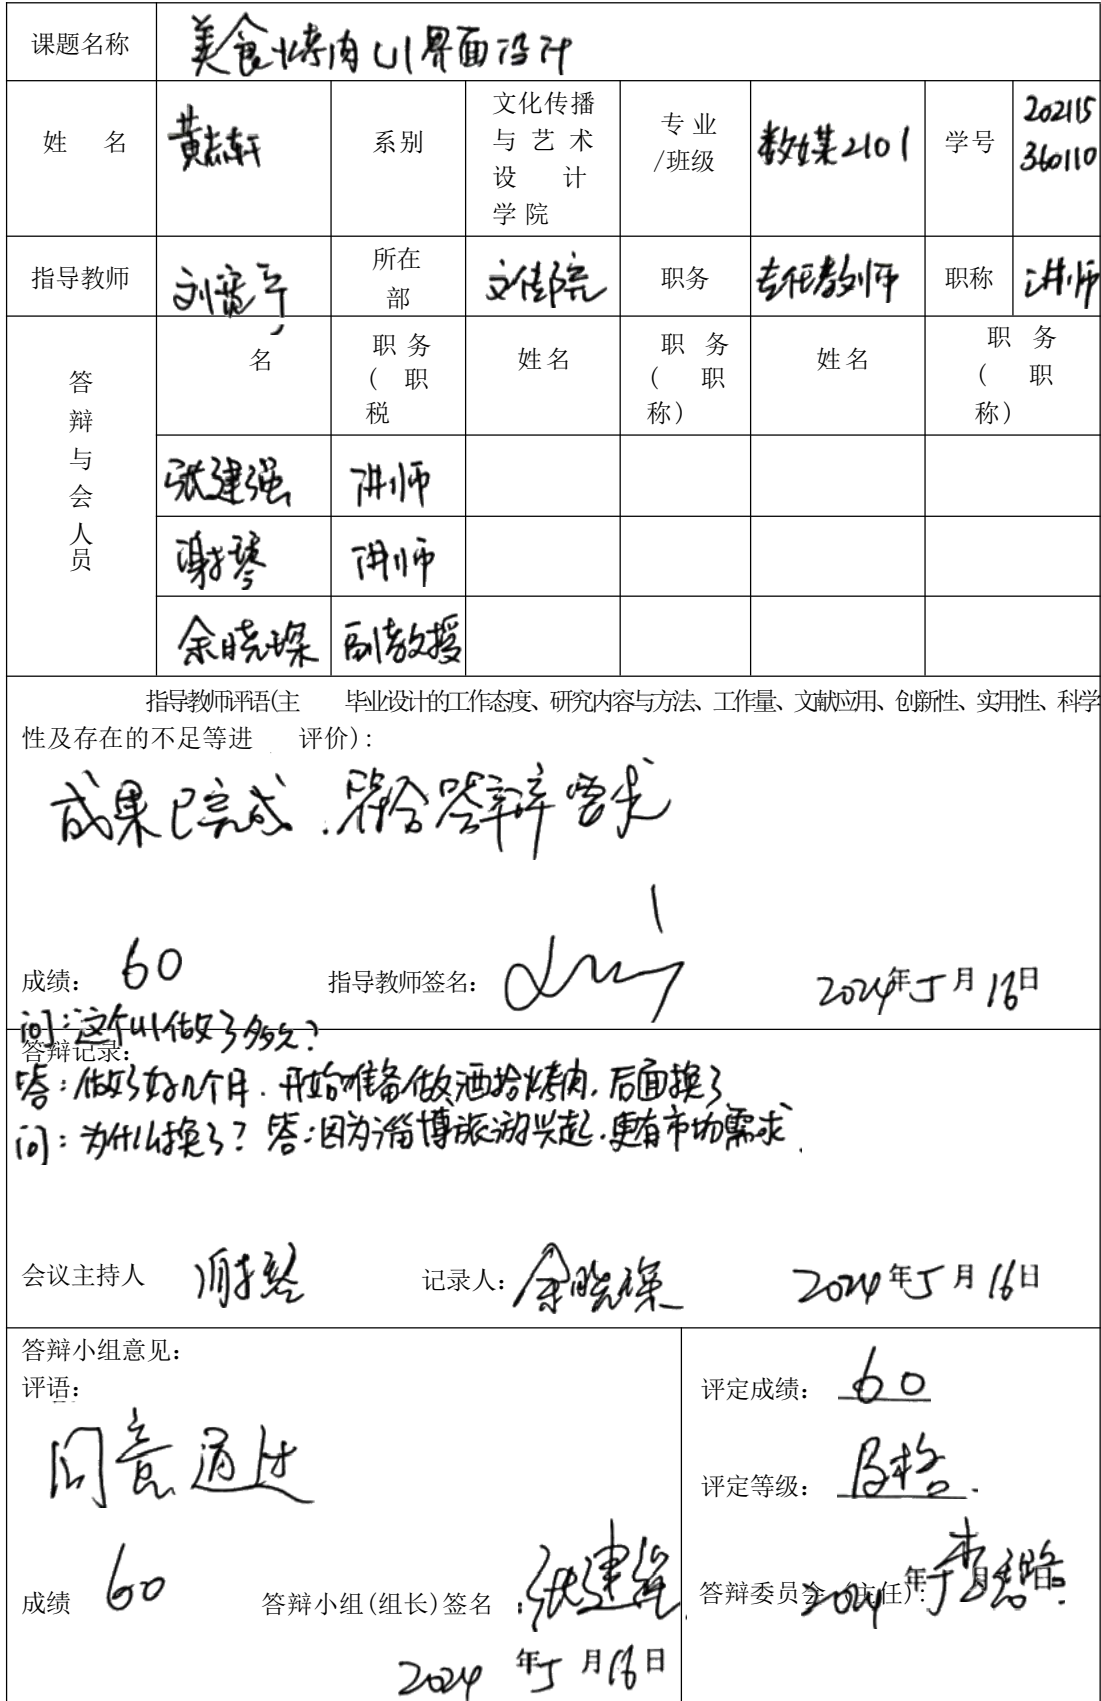 课题名称 美食烤肉UI界面设计
姓 名 黄志轩 系别 文化传播与艺术设计学院 专业/班级 数媒2101 学号 202115360110
指导教师 所在部 文传院 职务 专任教师 职称 讲师
答辩与会人员 名 职务(职税 姓名 职务(职称) 姓名 职务(职称)
张建强 讲师
谢琴 讲师
余晓琛 副教授
指导教师评语(主 毕业设计的工作态度、研究内容与方法、工作量、文献应用、创新性、实用性、科学
性及存在的不足等进 评价):
成果已完成.符合答辩要求
成绩: 60 指导教师签名: 2024年5月16日
问:这个UI做了多久?
答辩记录:
答:做了好几个月.开始准备做洒拾烤肉,后面换了
问:为什么换了?答:因为淄博旅游兴起.更有市场需求.
会议主持人 谢琴 记录人: 余晓琛 2024年5月16日
答辩小组意见:
评语:
同意通过
成绩 60 答辩小组(组长)签名: 张建强
2024年5月16日
评定成绩: 60
评定等级: 及格.
答辩委员会(主任):
2024年5月 日